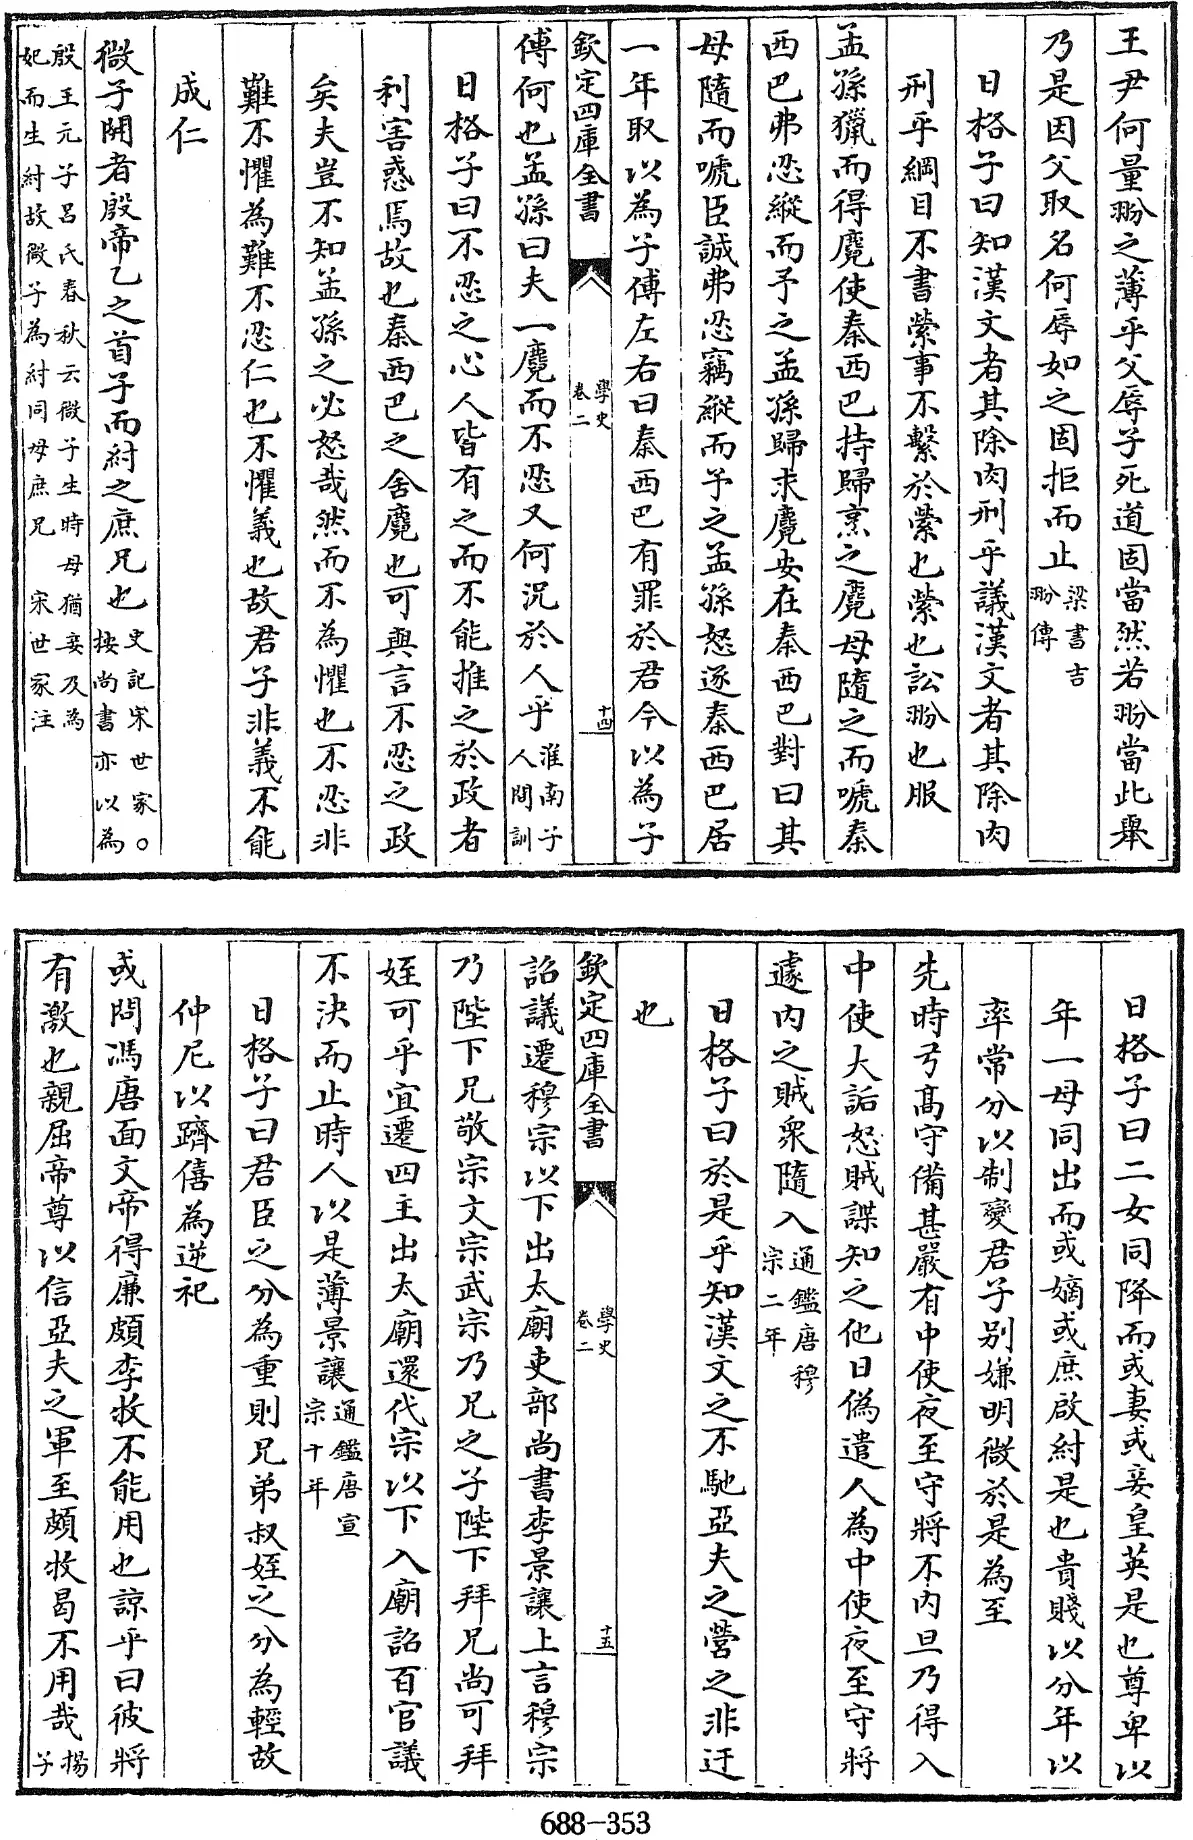 王尹何量翂之薄乎父辱子死道固當然若翂當此舉
乃是因父取名何辱如之固拒而止梁書吉
翂傳
日格子曰知漢文者其除肉刑乎議漢文者其除肉
刑乎綱目不書縈事不繫於縈也縈也訟翂也服
孟孫獵而得麑使秦西巴持歸烹之麑母隨之而嗁秦
西巴弗忍縱而予之孟孫歸求麑安在秦西巴對曰其
母隨而嗁臣誠弗忍竊縱而予之孟孫怒逐秦西巴居
一年取以為子傅左右曰秦西巴有罪於君今以為子
欽定四庫全書
學史
卷二
十四
傅何也孟孫曰夫一麑而不忍又何況於人乎淮南子
人間訓
日格子曰不忍之心人皆有之而不能推之於政者
利害惑焉故也秦西巴之舍麑也可與言不忍之政
矣夫豈不知孟孫之必怒哉然而不為懼也不忍非
難不懼為難不忍仁也不懼義也故君子非義不能
成仁
微子開者殷帝乙之首子而紂之庶兄也史記宋世家○
按尚書亦以為
殷王元子呂氏春秋云微子生時母猶妾及為
妃而生紂故微子為紂同母庶兄 宋世家注
日格子曰二女同降而或妻或妾皇英是也尊卑以
年一母同出而或嫡或庶啟紂是也貴賤以分年以
率常分以制變君子别嫌明微於是為至
先時弓髙守備甚嚴有中使夜至守將不内旦乃得入
中使大詬怒賊諜知之他日偽遣人為中使夜至守將
遽内之賊衆隨入通鑑唐穆
宗二年
日格子曰於是乎知漢文之不馳亞夫之營之非迂
也
欽定四庫全書
學史
卷二
十五
詔議遷穆宗以下出太廟吏部尚書李景讓上言穆宗
乃陛下兄敬宗文宗武宗乃兄之子陛下拜兄尚可拜
姪可乎宜遷四主出太廟還代宗以下入廟詔百官議
不決而止時人以是薄景讓通鑑唐宣
宗十年
日格子曰君臣之分為重則兄弟叔姪之分為輕故
仲尼以躋僖為逆祀
或問馮唐面文帝得廉頗李牧不能用也諒乎曰彼將
有激也親屈帝尊以信亞夫之軍至頗牧曷不用哉揚
子
688-353